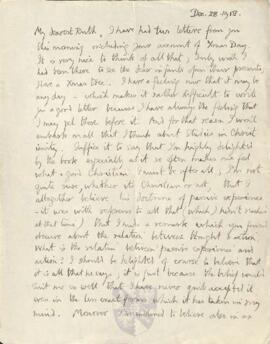 Dec. 28. 1918.
My dearest Ruth, I have had two letters from you
this morning including your account of Xmas Day.
It is very nice to think of all that, I only wish I
had been there to see the dear infants open their presents,
have a Xmas tree. I have a feeling now that it may be
any day - which makes it rather difficult to write
you a good letter because I have always the feeling that I
may get there before it. And for that reason I won't
embark on all that I think about Studies in Christ
ianity. Suffice it to say that I'm highly delighted
by the book especially at it so often makes me feel
what a good Christian I must be after all; I'm not
quite sure, whether it's Christian or not, that I
altogether believe his doctrine of passive experience
- it was with reference to all that which I hadn't reached
at that time) that I made a remark which you found
obscure about the relation between thought & action
What is the relation between passive experience and
action? I should be delighted of course to believe that
it is all that he says, it is just because the belief would
suit me so well that I have never quite accepted it
even in the less exact form which it has taken in my
mind. Moreover I'm inclined to believe also in an